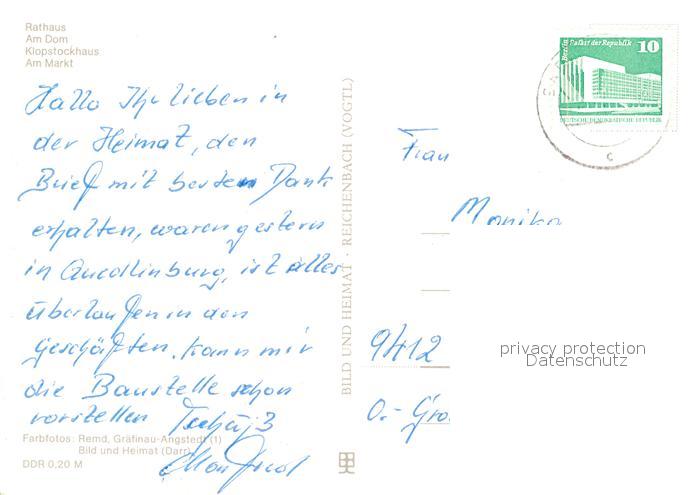 Rathaus
Am Dom
Klopstockhaus
Am Markt
Hallo Ihr lieben in
der Heimat, den
Brief mit besten Dank
erhalten, waren gestern
in Quedlinburg, ist alles
überlaufen in den
Geschäften. Kann mir
die Baustelle schon
vorstellen Tschüß
Manfred
Farbfotos: Remd, Gräfinau-Angstedt (1)
Bild und Heimat (Darr)
DDR 0,20 M
BILD UND HEIMAT · REICHENBACH (VOGTL)
Berlin Palast der Republik 10
DEUTSCHE DEMOKRATISCHE REPUBLIK
c
Frau
Monika
9412
O.-Gro
privacy protection
Datenschutz